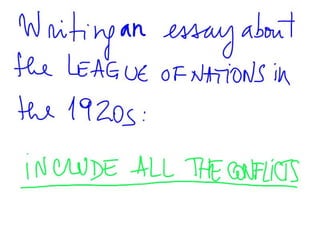 Writing an essay about
the LEAGUE OF NATIONS in
the 1920s:
INCLUDE ALL THE CONFLICTS